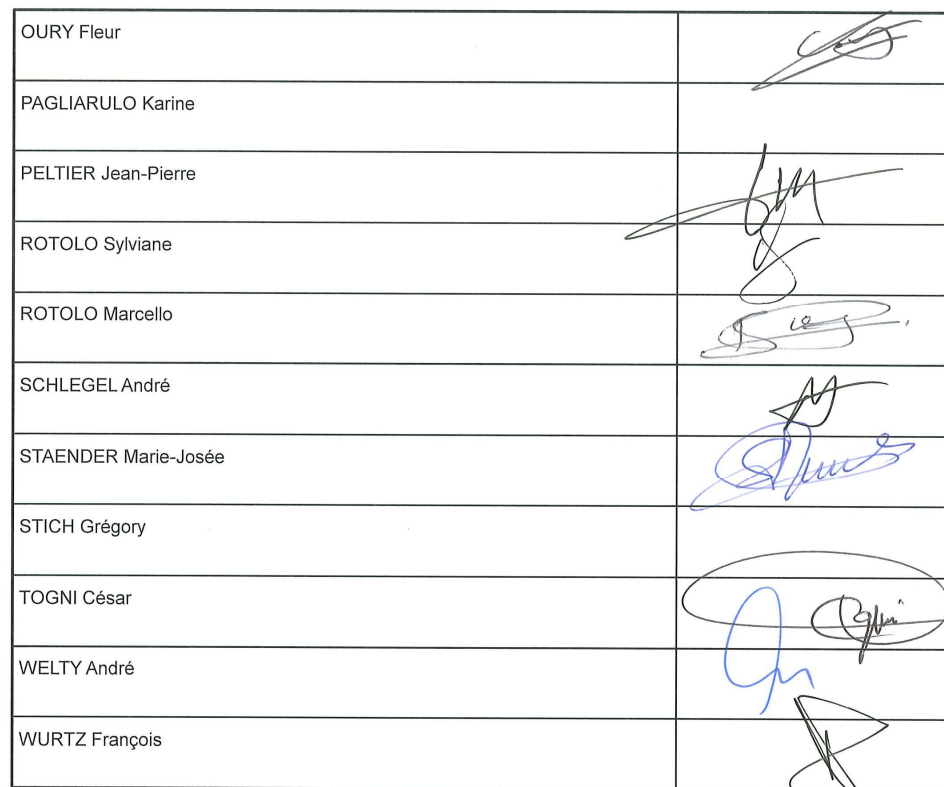 OURY Fleur
PAGLIARULO Karine
PELTIER Jean-Pierre
ROTOLO Sylviane
ROTOLO Marcello
SCHLEGEL André
STAENDER Marie-Josée
STICH Grégory
TOGNI César
WELTY André
WURTZ François